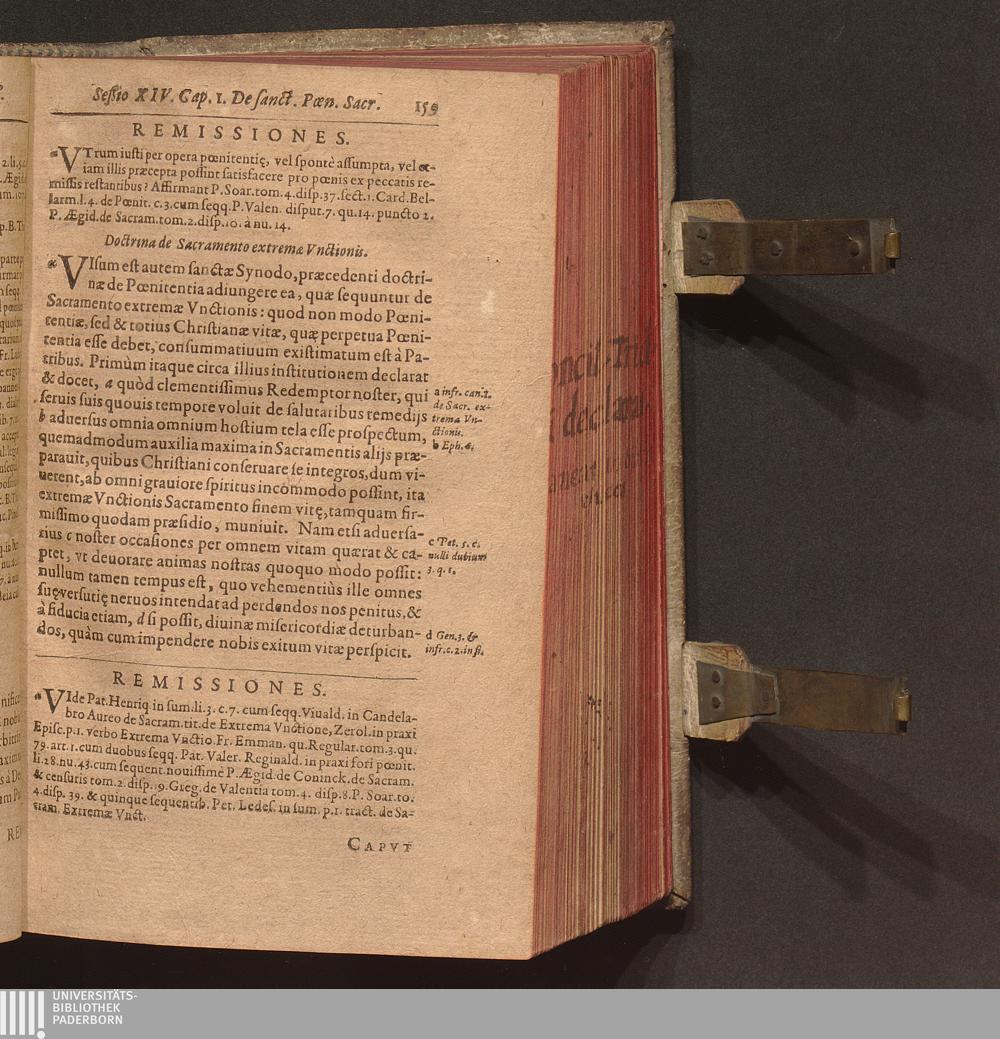 Sessio XIV. Cap. I. De sanct. Pœn. Sacr. 159
REMISSIONES.
VTrum iusti per opera pœnitentię, vel spontè assumpta, vel et-
iam illis præcepta possint satisfacere pro pœnis ex peccatis re-
missis restantibus? Affirmant P. Soar. tom. 4. disp. 37. sect. 1. Card. Bel-
larm. l. 4. de Pœnit. c. 3. cum seqq. P. Valen. disput. 7. qu. 14. puncto 2.
P. Ægid. de Sacram. tom. 2. disp. 10. à nu. 14.
Doctrina de Sacramento extremæ Vnctionis.
VIsum est autem sanctæ Synodo, præcedenti doctri-
næ de Pœnitentia adiungere ea, quæ sequuntur de
Sacramento extremæ Vnctionis: quod non modo Pœni-
tentiæ, sed & totius Christianæ vitæ, quæ perpetua Pœni-
tentia esse debet, consummatiuum existimatum est à Pa-
tribus. Primùm itaque circa illius institutionem declarat
& docet, a quòd clementissimus Redemptor noster, qui
seruis suis quouis tempore voluit de salutaribus remedijs
b aduersus omnia omnium hostium tela esse prospectum,
quemadmodum auxilia maxima in Sacramentis alijs præ-
parauit, quibus Christiani conseruare se integros, dum vi-
uerent, ab omni grauiore spiritus incommodo possint, ita
extremæ Vnctionis Sacramento finem vitę, tamquam fir-
missimo quodam præsidio, muniuit. Nam etsi aduersa-
rius c noster occasiones per omnem vitam quærat & ca-
ptet, vt deuorare animas nostras quoquo modo possit:
nullum tamen tempus est, quo vehementiùs ille omnes
suę versutię neruos intendat ad perdendos nos penitus, &
à fiducia etiam, d si possit, diuinæ misericordiæ deturban-
dos, quàm cum impendere nobis exitum vitæ perspicit.
a infr. can. 1.
de Sacr. ex-
trema Vn-
ctionis.
b Eph. 6.
c Pet. 5. c.
nulli dubium
3. q. 1.
d Gen. 3. &
infr. c. 2. in fi.
REMISSIONES.
VIde Pat. Henriq in sum. li. 3. c. 7. cum seqq. Viuald. in Candela-
bro Aureo de Sacram. tit. de Extrema Vnctione, Zerol. in praxi
Episc. p. 1. verbo Extrema Vnctio. Fr. Emman. qu. Regular. tom. 3. qu.
79. art. 1. cum duobus seqq. Pat. Valer. Reginald. in praxi fori pœnit.
li. 28. nu. 43. cum sequent. nouissimè P. Ægid. de Coninck. de Sacram.
& censuris tom. 2. disp. 19. Greg. de Valentia tom. 4. disp. 8. P. Soar. to.
4. disp. 39. & quinque sequentib. Pet. Ledes. in sum. p. 1. tract. de Sa-
cram. Extremæ Vnct.
CAPVT
UNIVERSITÄTS-
BIBLIOTHEK
PADERBORN